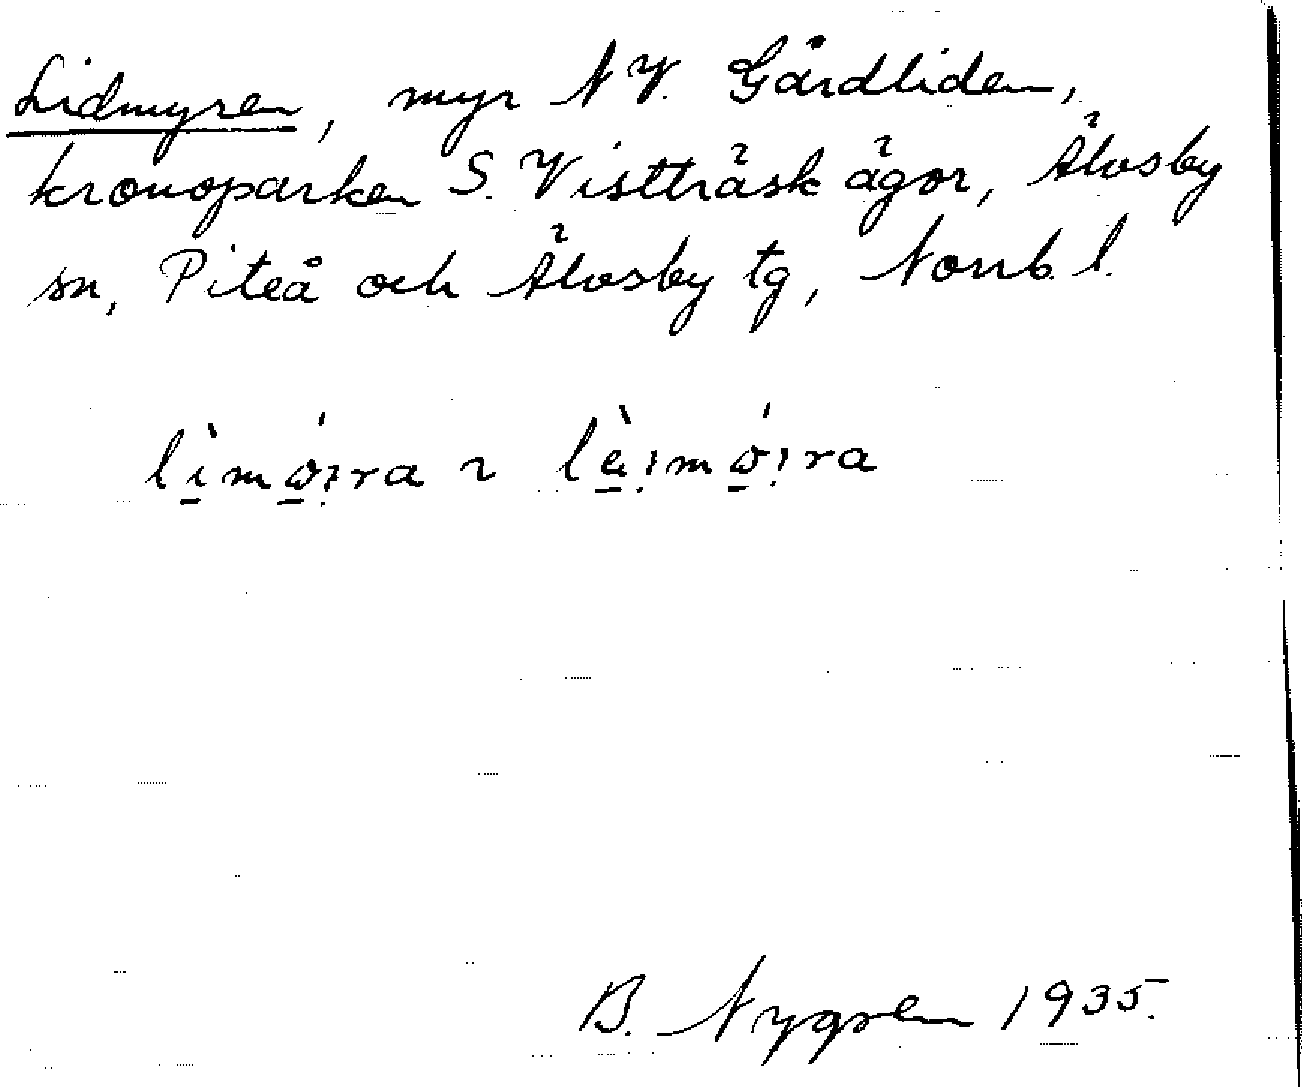 Lidmyren, myr N V. Gårdliden,
kronoparken S. Vistträsk ägor, Älvsby
sn, Piteå och Älvsby tg, Norrb. l.
lìmǿi̩ra ~ lài̩mǿi̩ra
B. Nygren 1935.